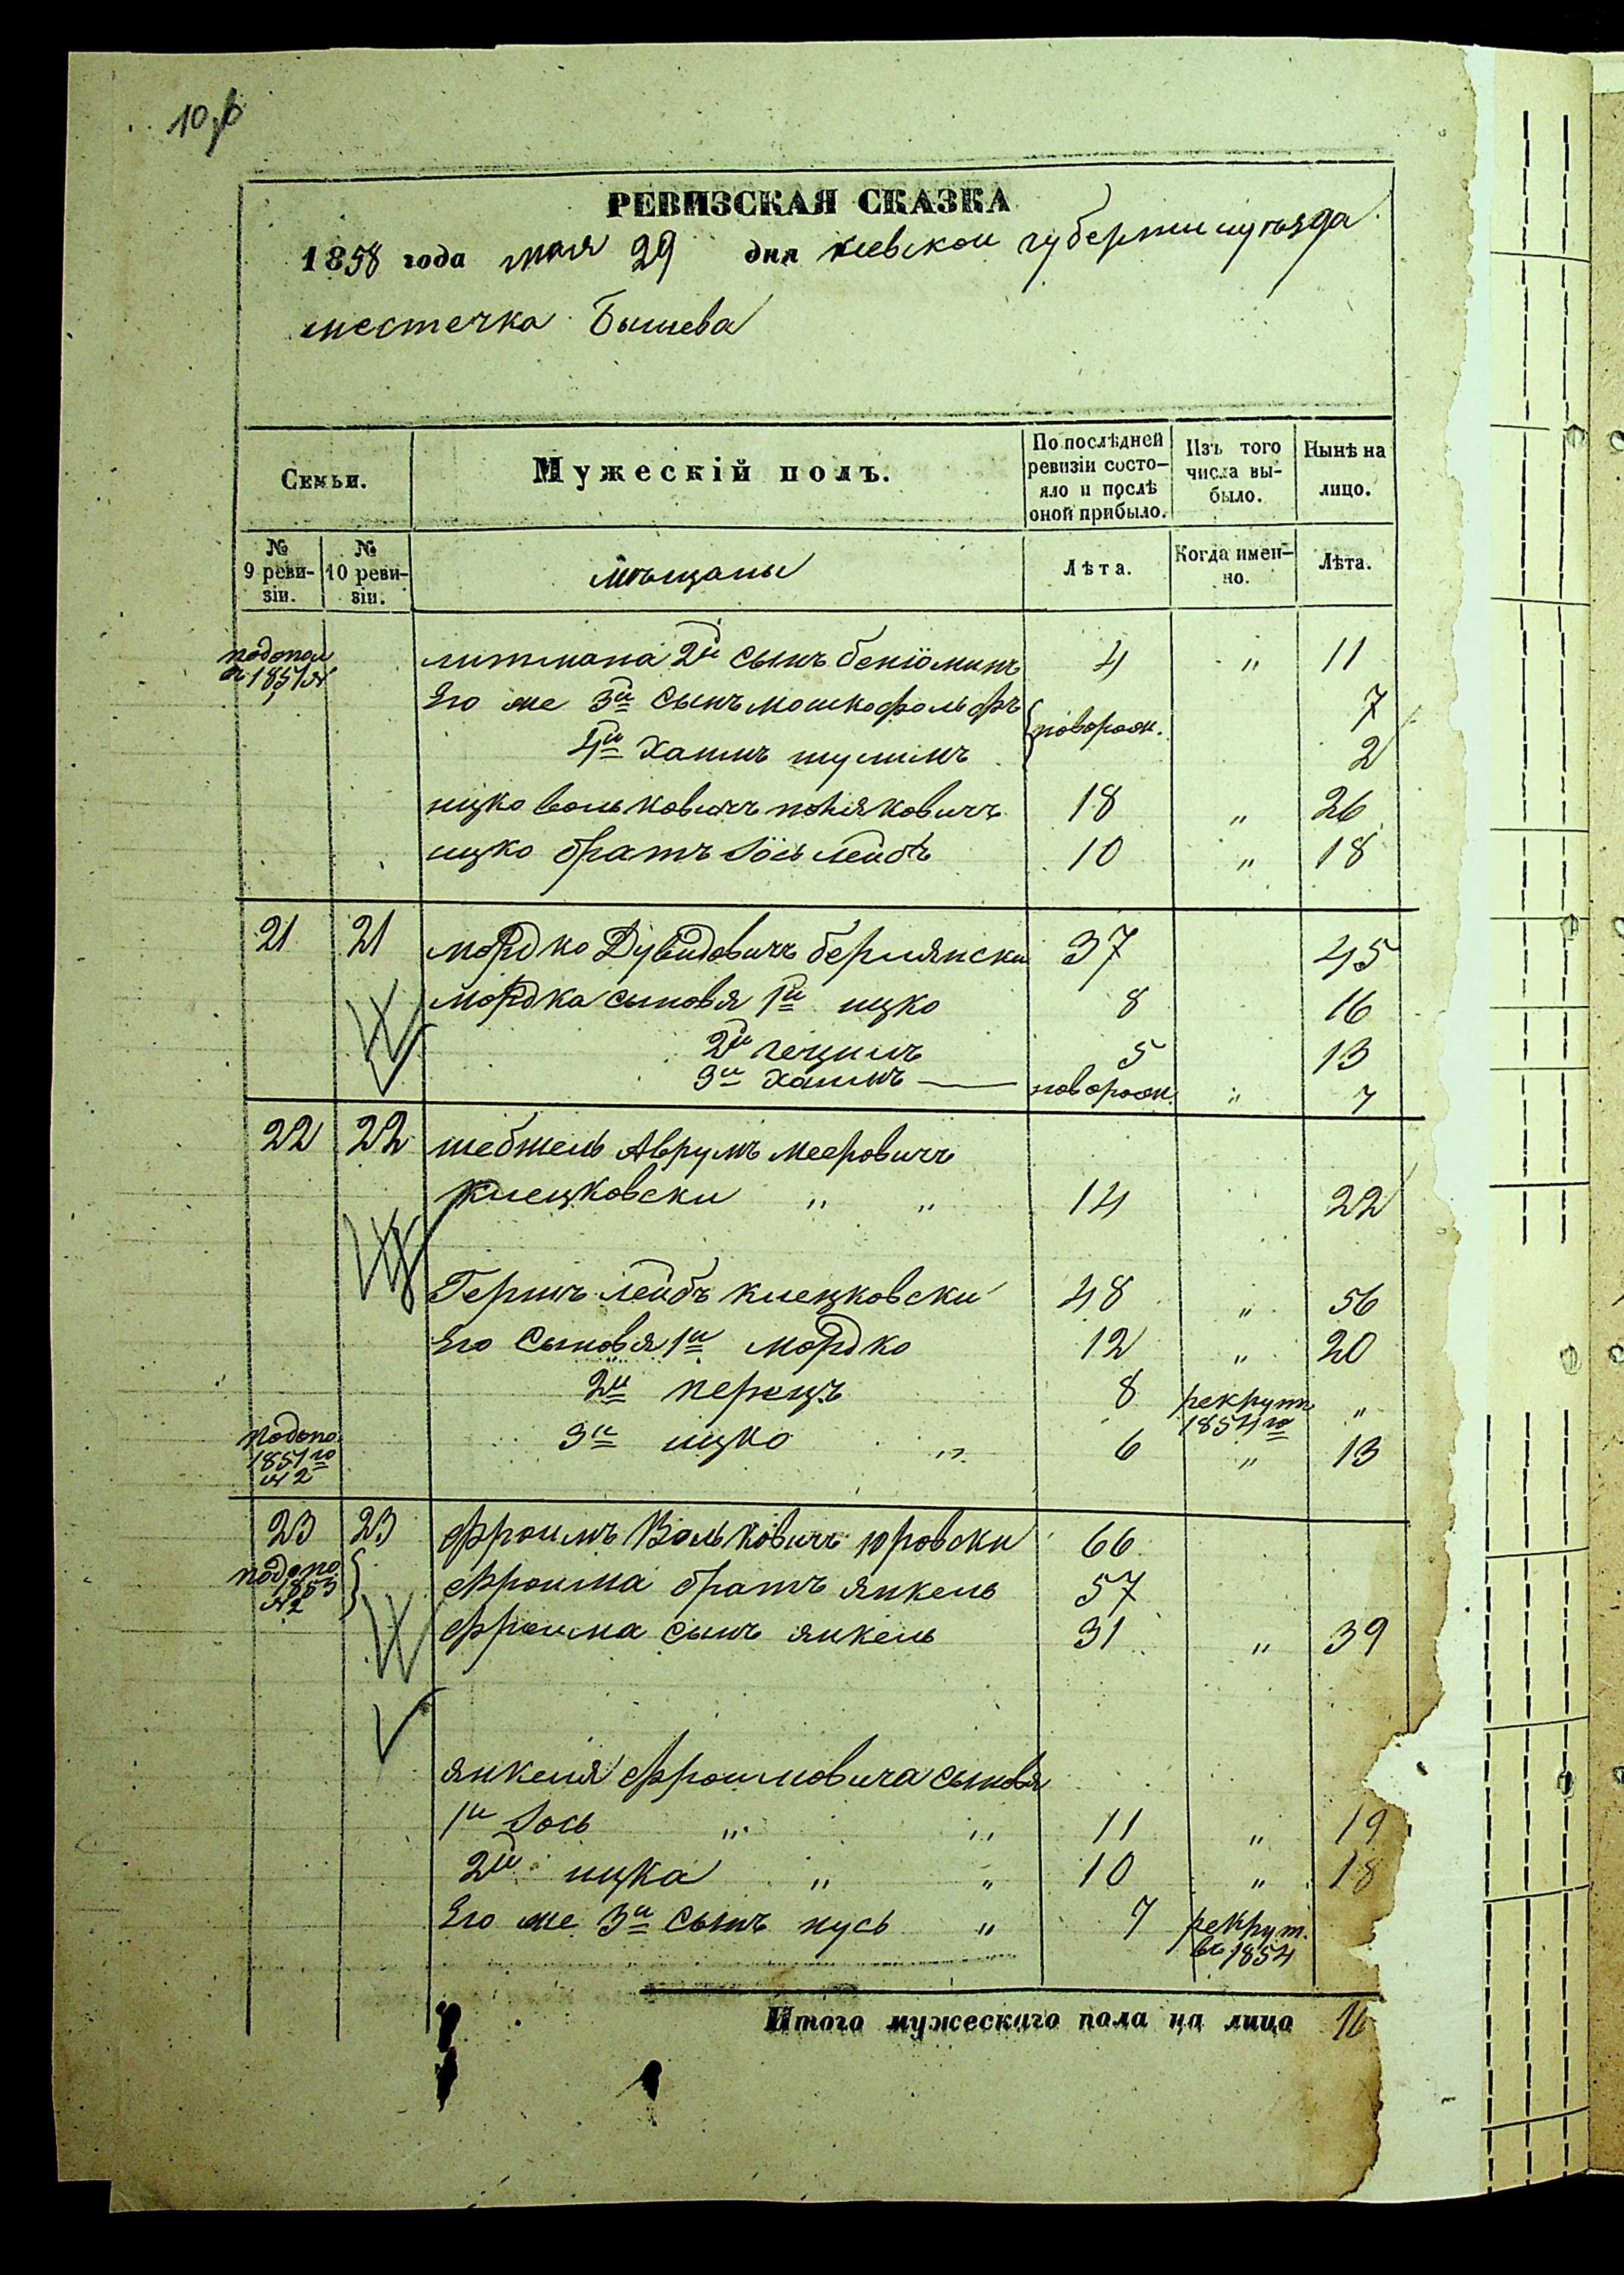 10
РЕВИЗСКАЯ СКАЗКА
1858 года мая 29 дня киевской губернии и уезда
местечка Бышева
Семьи.
Мужескій полъ.
По послѣдней ревизіи состо-
яло и послѣ оной прибыло.
Изъ того числа вы-
было.
Нынѣ на лицо.
№ 9 реви-
зіи.
№ 10 реви-
зіи.
мѣщаны
Лѣта.
Когда имен-
но.
Лѣта.
подопол
1851
литмана 2й сынъ бенiоминъ 4 " 11
Его же 3й сынъ мошко фольфъ новорож. 7
4й хаимъ шулимъ 2
ицко вольковичъ 18 " 26
ицко братъ Іось лейбъ 10 " 18
21 21 мордко Дувидовичъ бермянски 37 45
мордка сыновя 1й ицко 8 16
2й гецилъ 5 13
3й хаимъ — новорож. " 7
22 22 Аврумъ мееровичъ
клецковски " " 14 22
Гершъ лейбъ клецковски 48 " 56
Его сыновя 1й мордко 12 " 20
2й перецъ 8 рекрутъ 1854го "
подопо. 1851го № 2
3й ицко " 6 " 13
23 23 фроимъ Вольковичъ юровски 66
подопо. 1853 № 2
фроима братъ янкель 57
фроима сынъ янкель 31 " 39
янкеля фроимовича сыновя
1й Іось " " 11 " 19
2й ицка " " 10 " 18
Его же 3й сынъ нусь " 7 рекрут. въ 1854
Итого мужескаго пола на лицо 16